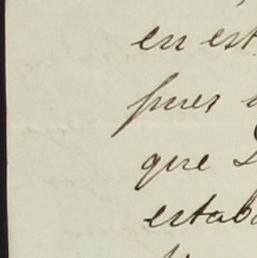 en est
pues
que
estab